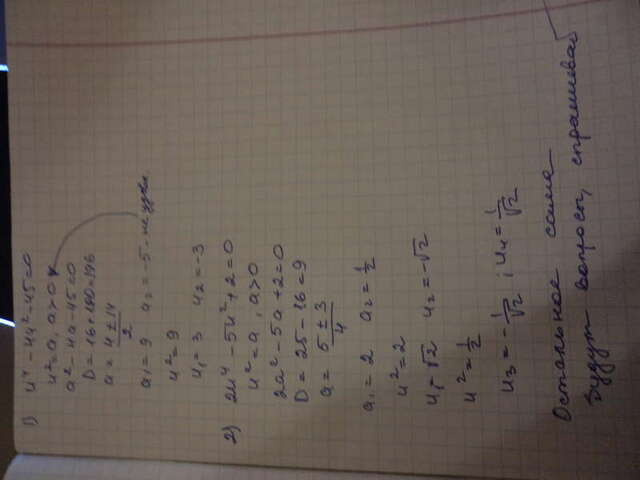 1) u⁴-4u²-45=0
u²=a, a>0
a²-4a-45=0
D=16+180=196
a=4±14/2
a₁=9 a₂=-5 - не удовл.
u²=9
u₁=3 u₂=-3
2) 2u⁴-5u²+2=0
u²=a, a>0
2a²-5a+2=0
D=25-16=9
a=5±3/4
a₁=2 a₂=1/2
u²=2
u₁=√2 u₂=-√2
u²=1/2
u₃=-1/√2; u₄=1/√2
Остальное сама
Будут вопросы, спрашивай